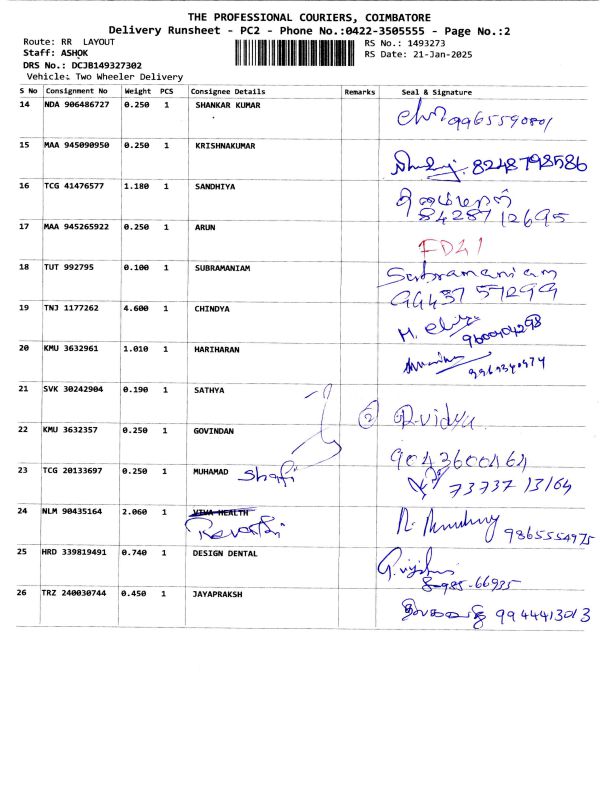 THE PROFESSIONAL COURIERS, COIMBATORE
Delivery Runsheet - PC2 - Phone No.:0422-3505555 - Page No.:2
Route: RR LAYOUT
RS No.: 1493273
Staff: ASHOK
RS Date: 21-Jan-2025
DRS No.: DCJB149327302
Vehicle: Two Wheeler Delivery
S No Consignment No Weight PCS Consignee Details Remarks Seal & Signature
14 NDA 906486727 0.250 1 SHANKAR KUMAR
9965590801
15 MAA 945090950 0.250 1 KRISHNAKUMAR
8248798586
16 TCG 41476577 1.180 1 SANDHIYA
8428712695
17 MAA 945265922 0.250 1 ARUN
18 TUT 992795 0.100 1 SUBRAMANIAM
Subramaniam
9443757299
19 TNJ 1177262 4.600 1 CHINDYA
20 KMU 3632961 1.010 1 HARIHARAN
21 SVK 30242904 0.190 1 SATHYA
2 R.vidya
22 KMU 3632357 0.250 1 GOVINDAN
9043600164
23 TCG 20133697 0.250 1 MUHAMAD shafi
73737 13164
24 NLM 90435164 2.060 1 VIVA HEALTH
Revathi
9865554975
25 HRD 339819491 0.740 1 DESIGN DENTAL
26 TRZ 240030744 0.450 1 JAYAPRAKSH
9944413013